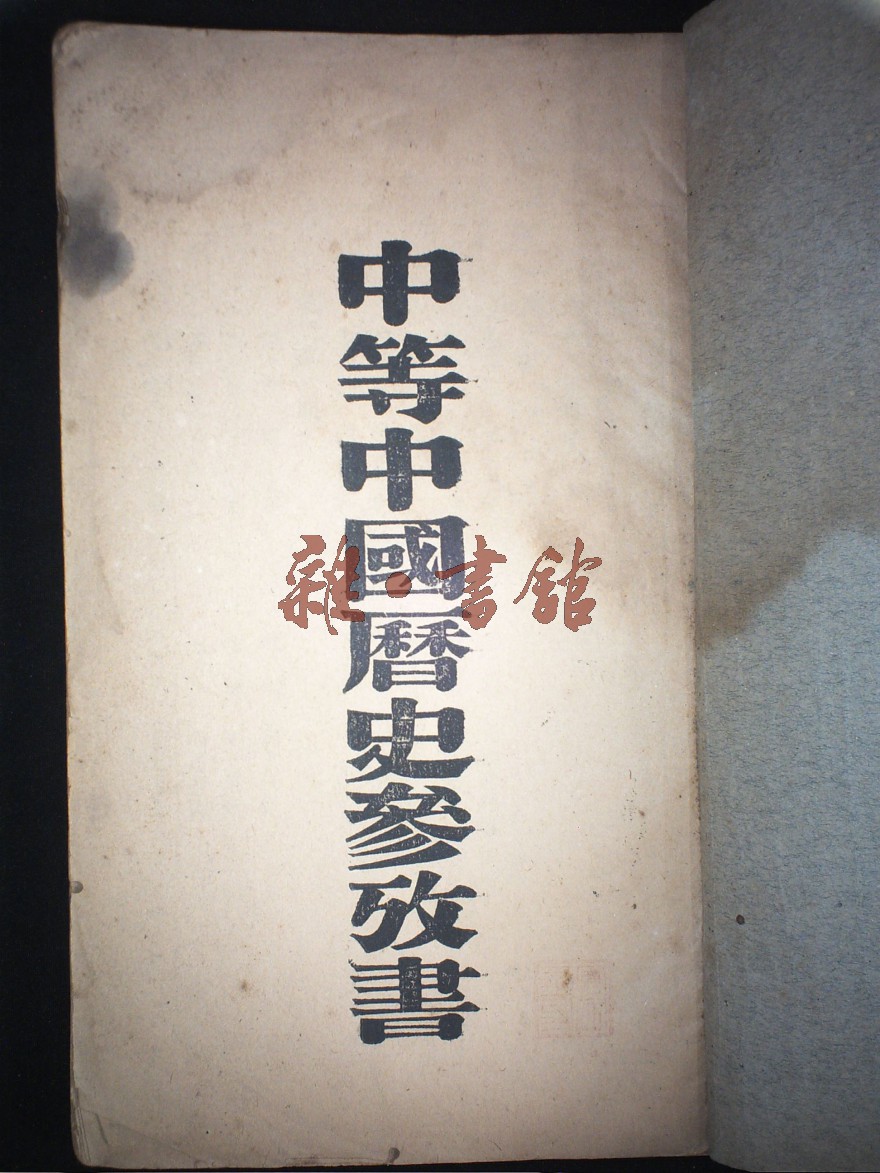 中等中國暦史參攷書
雜·書館